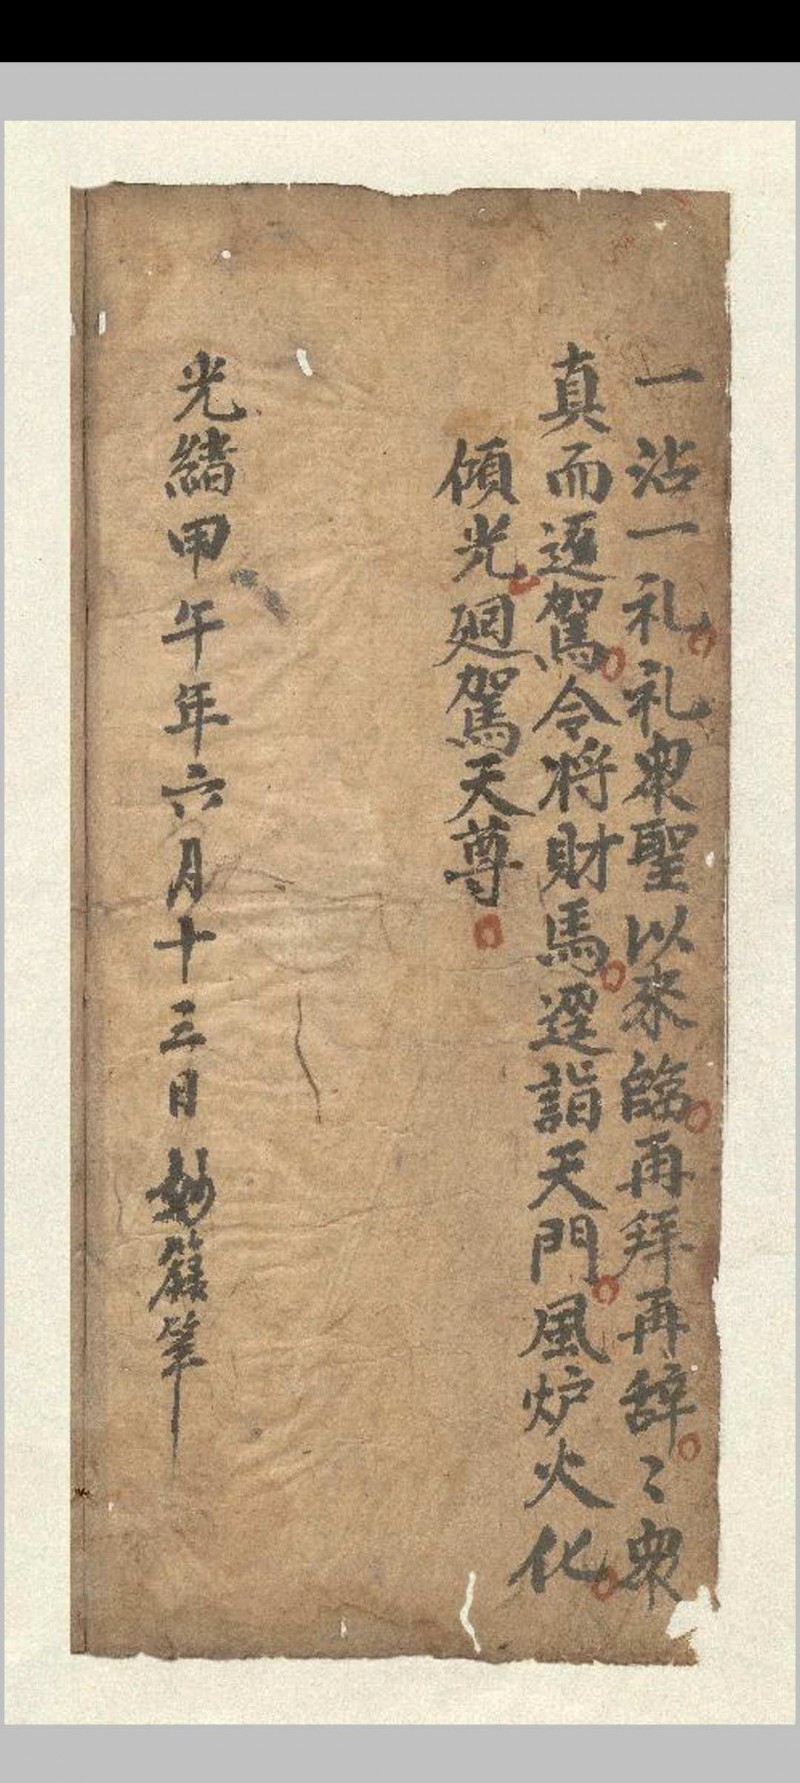 一沾一礼礼衆聖以来臨再拜再辞〻衆
真而返駕令将財馬逕詣天門風炉火化
傾光廻駕天尊
光緒甲午年六月十三日妙籙筆